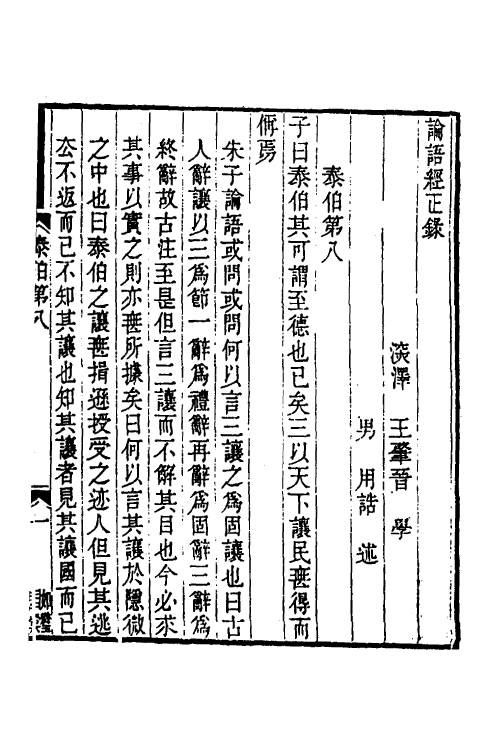 論語經正錄
深澤 王肇晉 學
男 用誥 述
泰伯第八
子曰泰伯其可謂至德也已矣三以天下讓民無得而
偁焉
朱子論語或問或問何以言三讓之爲固讓也曰古
人辭讓以三爲節一辭爲禮辭再辭爲固辭三辭爲
終辭故古注至是但言三讓而不解其目也今必求
其事以實之則亦無所據矣曰何以言其讓於隱微
之中也曰泰伯之讓無揖遜授受之迹人但見其逃
去不返而已不知其讓也知其讓者見其讓國而已
泰伯第八
一